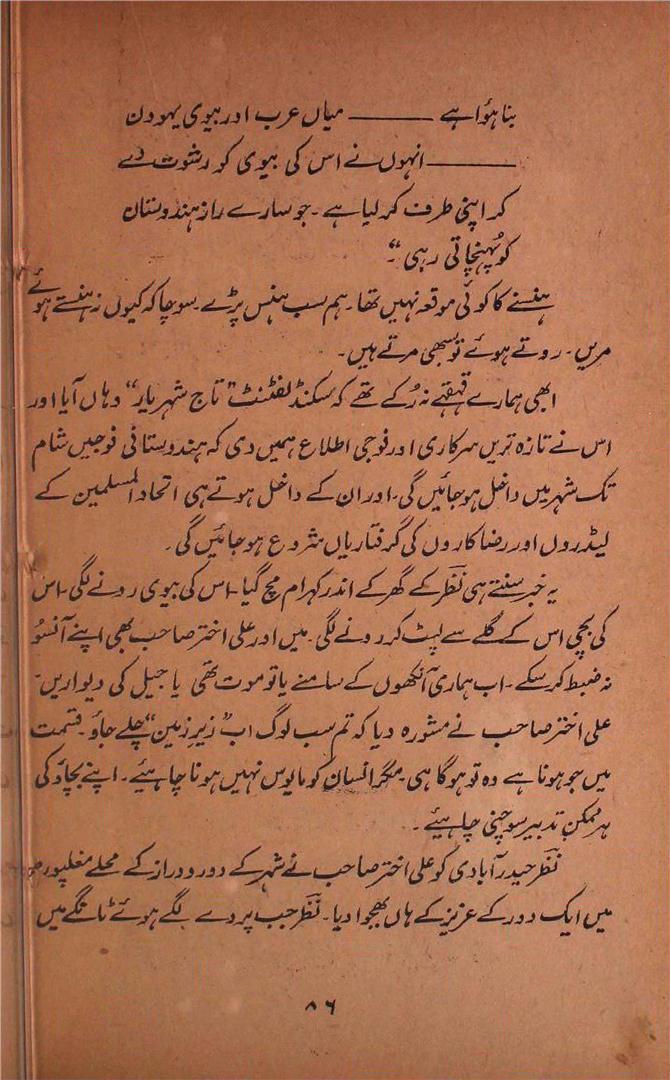 بنا ہوا ہے ——— میاں عرب اور بیوی یہودن
——— انہوں نے اس کی بیوی کو رشوت دے
کر اپنی طرف کر لیا ہے۔ جو سارے راز ہندوستان
کو پہنچاتی رہی"۔
ہنسنے کا کوئی موقعہ نہیں تھا۔ ہم سب ہنس پڑے۔ سوچا کہ کیوں نہ ہنستے ہوئے
مریں۔ روتے ہوئے تو سبھی مرتے ہیں۔
ابھی ہمارے قہقہے نہ رُکے تھے کہ سکنڈ لفٹنٹ "تاج شہریار" وہاں آیا اور
اس نے تازہ ترین سرکاری اور فوجی اطلاع ہمیں دی کہ ہندوستانی فوجیں شام
تک شہر میں داخل ہو جائیں گی۔ اور ان کے داخل ہوتے ہی اتحاد المسلمین کے
لیڈروں اور رضا کاروں کی گرفتاریاں شروع ہو جائیں گی۔
یہ خبر سنتے ہی نظر کے گھر کے اندر کہرام مچ گیا۔ اس کی بیوی رونے لگی۔ اس
کی بچی اس کے گلے سے لپٹ کر رونے لگی۔ میں اور علی اختر صاحب بھی اپنے آنسو
نہ ضبط کر سکے۔ اب ہماری آنکھوں کے سامنے یا تو موت تھی یا جیل کی دیواریں۔
علی اختر صاحب نے مشورہ دیا کہ تم سب لوگ اب "زیرِ زمین" چلے جاؤ۔ قسمت
میں جو ہونا ہے وہ تو ہوگا ہی۔ مگر انسان کو مایوس نہیں ہونا چاہیئے۔ اپنے بچاؤ کی
ہر ممکن تدبیر سوچنی چاہیئے۔
نظر حیدرآبادی کو علی اختر صاحب نے شہر کے دور دراز کے محلے مغلپورہ
میں ایک دور کے عزیز کے ہاں بھجوا دیا۔ نظر جب پردے لگے ہوئے ٹانگے میں
۸۶